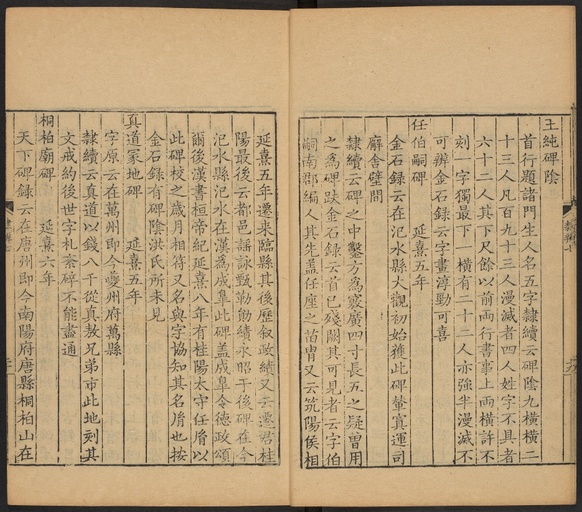 王純碑陰
首行題諸門生人名五字隸續云碑陰九橫橫二
十三人凡百九十三人漫滅者四人姓字不具者
六十二人其下尺餘以前兩行書事上兩橫許不
刻一字獨最下一橫有二十三人亦強半漫滅不
可辨金石錄云字畫淳勁可喜
任伯嗣碑 延熹五年
金石錄云在汜水縣大觀初始獲此碑輦寘運司
廨舍壁間
隸續云碑之中鑿方為竅廣四寸長五之疑曾用
之為碑趺金石錄云首已殘闕其可見者云字伯
嗣南郡編人其先蓋任座之苗冑又云筑陽侯相
延熹五年遷來臨縣其後歷叙政績又云遷君桂
陽最後云都邑謡詠甄勒勳績永昭于後碑在今
汜水縣汜水在漢為成皐此碑蓋成皐令德政頌
爾後漢書桓帝紀延熹八年有桂陽太守任胤以
此碑校之歲月相符又名與字協知其名胤也按
金石錄有碑陰洪氏所未見
真道冢地碑 延熹五年
字原云在萬州即今夔州府萬縣
隸續云真道以錢八千從真敖兄弟市此地刻其
文戒約後世字札紊碎不能盡通
桐柏廟碑 延熹六年
天下碑錄云在唐州即今南陽府唐縣桐柏山在